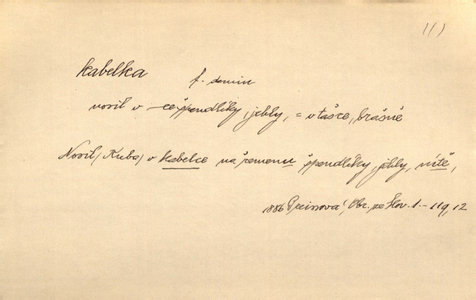 111
kabelka f. demin
nosil v —ce špendlíky, jehly, = v tašce, brašně
Nosil (Kuba) v kabelce na řemenu špendlíky, jehly, nitě,
1886 Pecinová, Obr. ze Slov. 1 - 119, 12